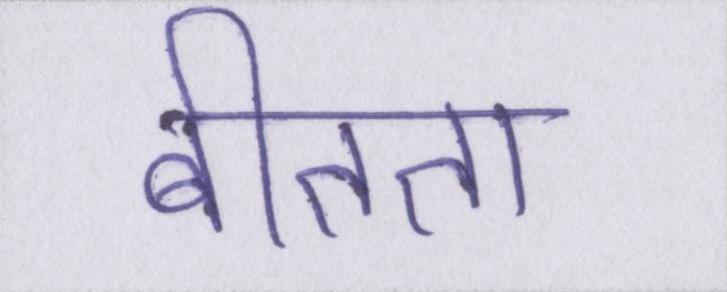 बीतता